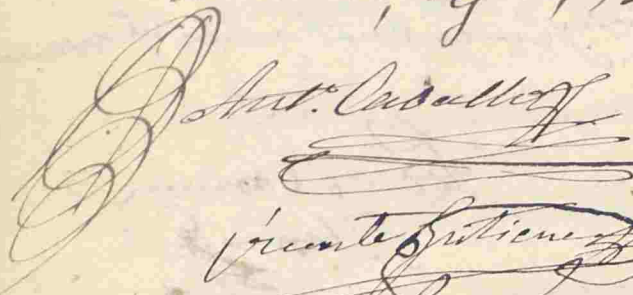 Ant.º Caballero
Vicente Gutierrez